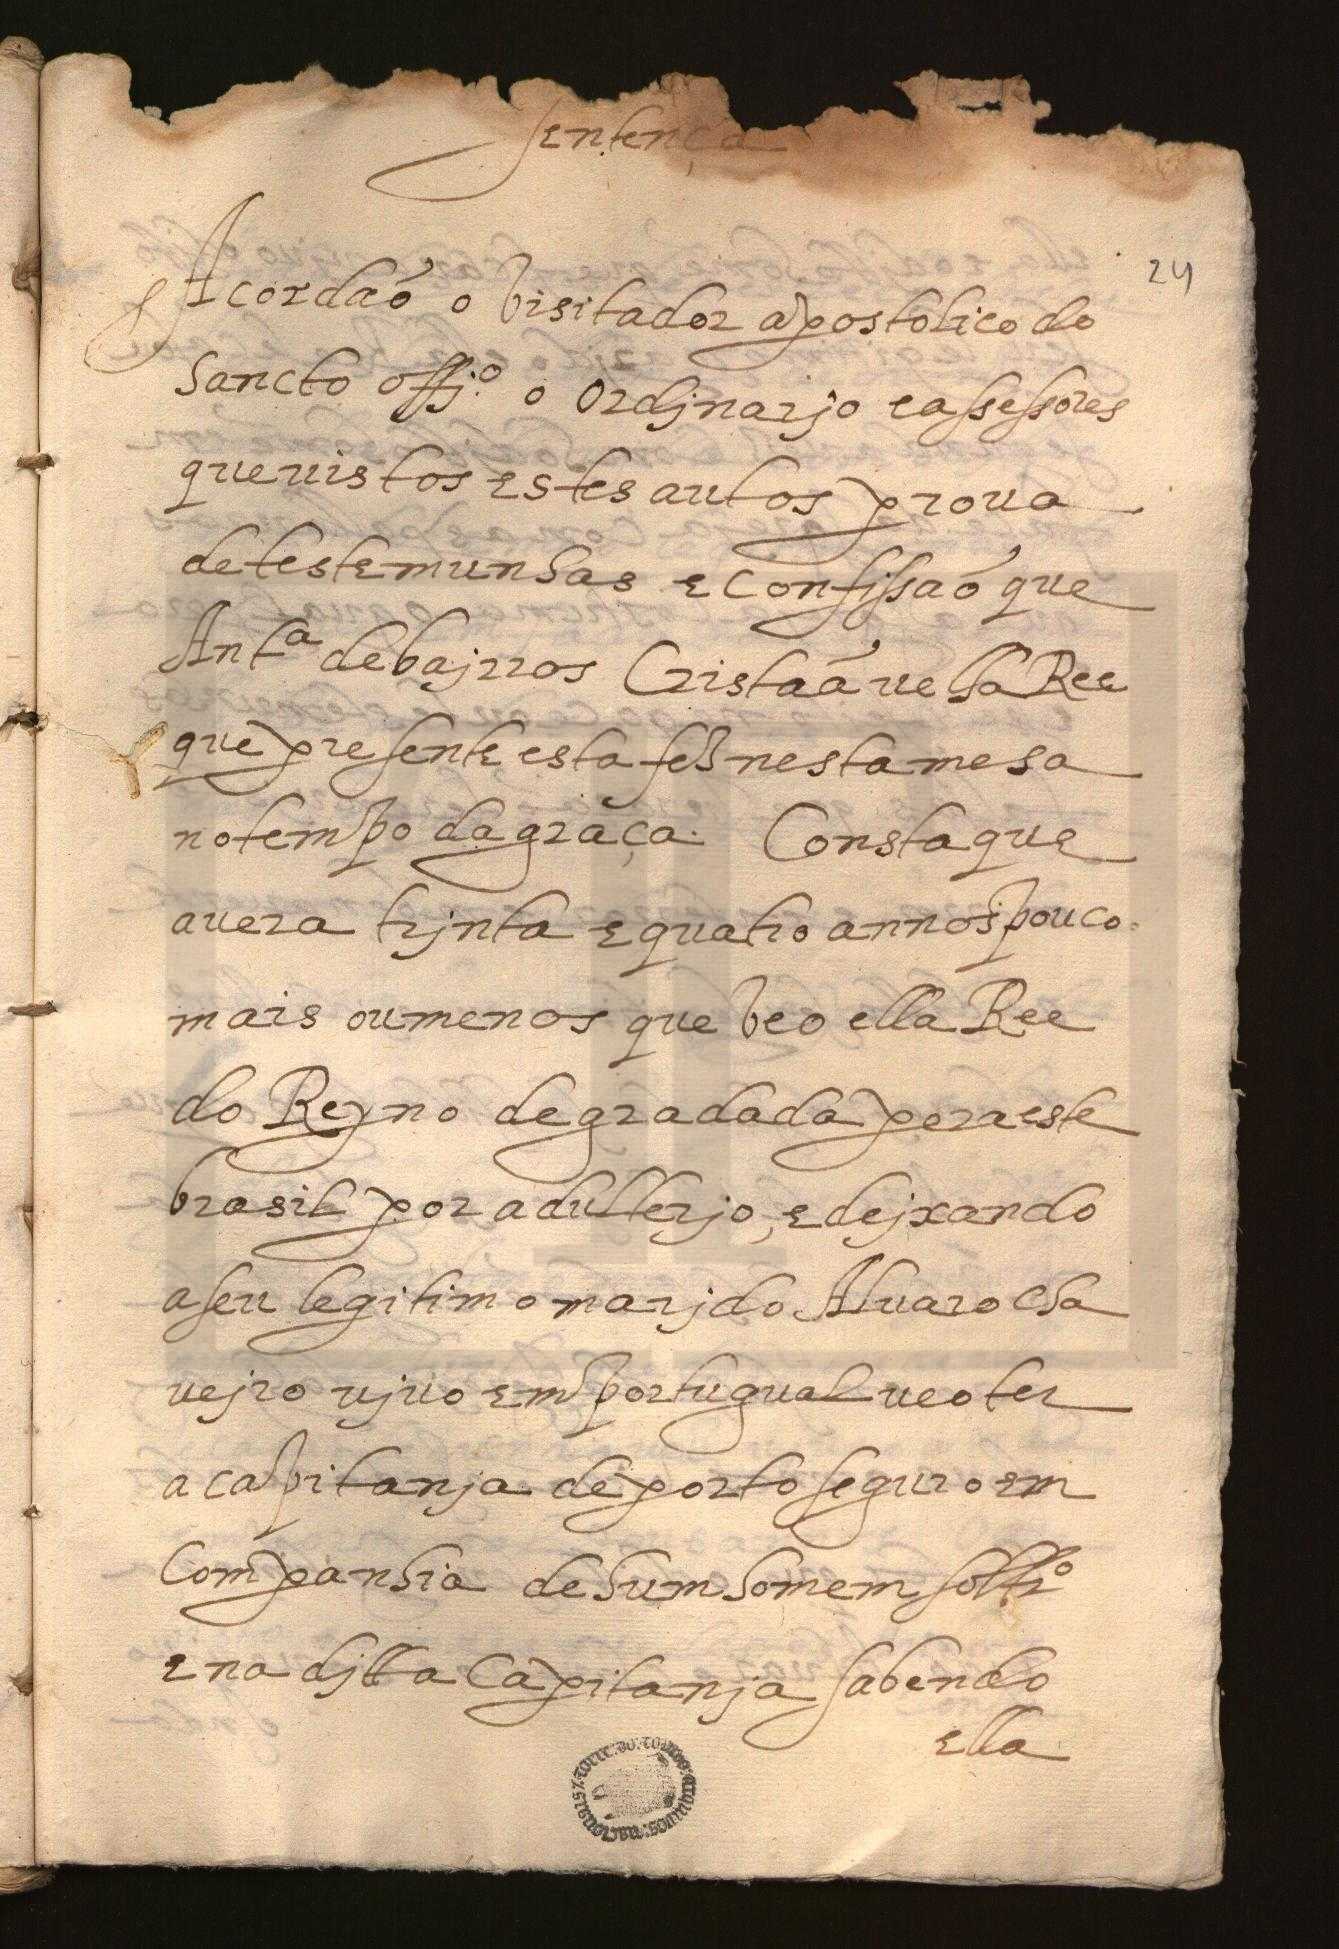 sentença
24
Acordaó o visitador apostolico do
sancto offj.º o Ordjnarjo e assessores
que uistos estes autos prova
de testemunhas e confissaó que
Antª de bajrros Cristaã uelha Ree
que presente esta fes nesta mesa
no tempo da graça. Consta que
auera trjnta e quatro annos pouco
mais ou menos que veo ella Ree
do Reyno degradada pera este
brasil por adulterjo, e dejxando
a seu legitimo marjdo Alvaro Cha
uejro ujuo em portugual veo ter
a capitanja de porto seguro em
companhia de hum homem soltrº
e na djtta Capitanja sabendo
ella